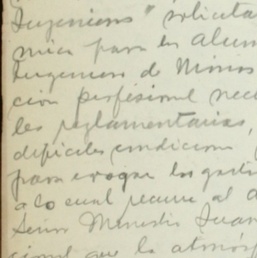 Ingenieros" solicita
mica para los alum
Ingenieros de Minas
ción profesional nece
les reglamentarias,
difíciles condicione
para erogar los gasto
a lo cual recurre al
Señor Ministro Juan
cional que la atmósf